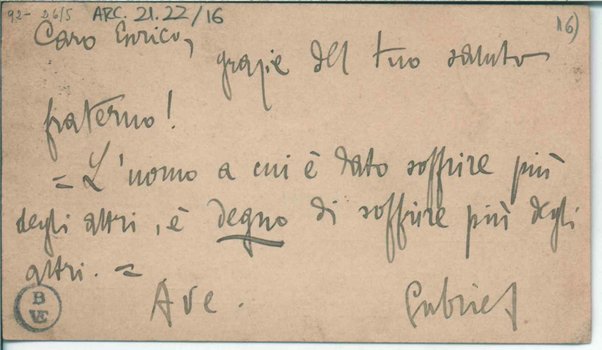 92- 26/5 ARC. 21.22/16
16)
Caro Enrico,
grazie del tuo saluto
fraterno!
= L'uomo a cui è dato soffrire più
degli altri, è degno di soffrire più degli
altri. =
Ave.
Gabriel
B
VE